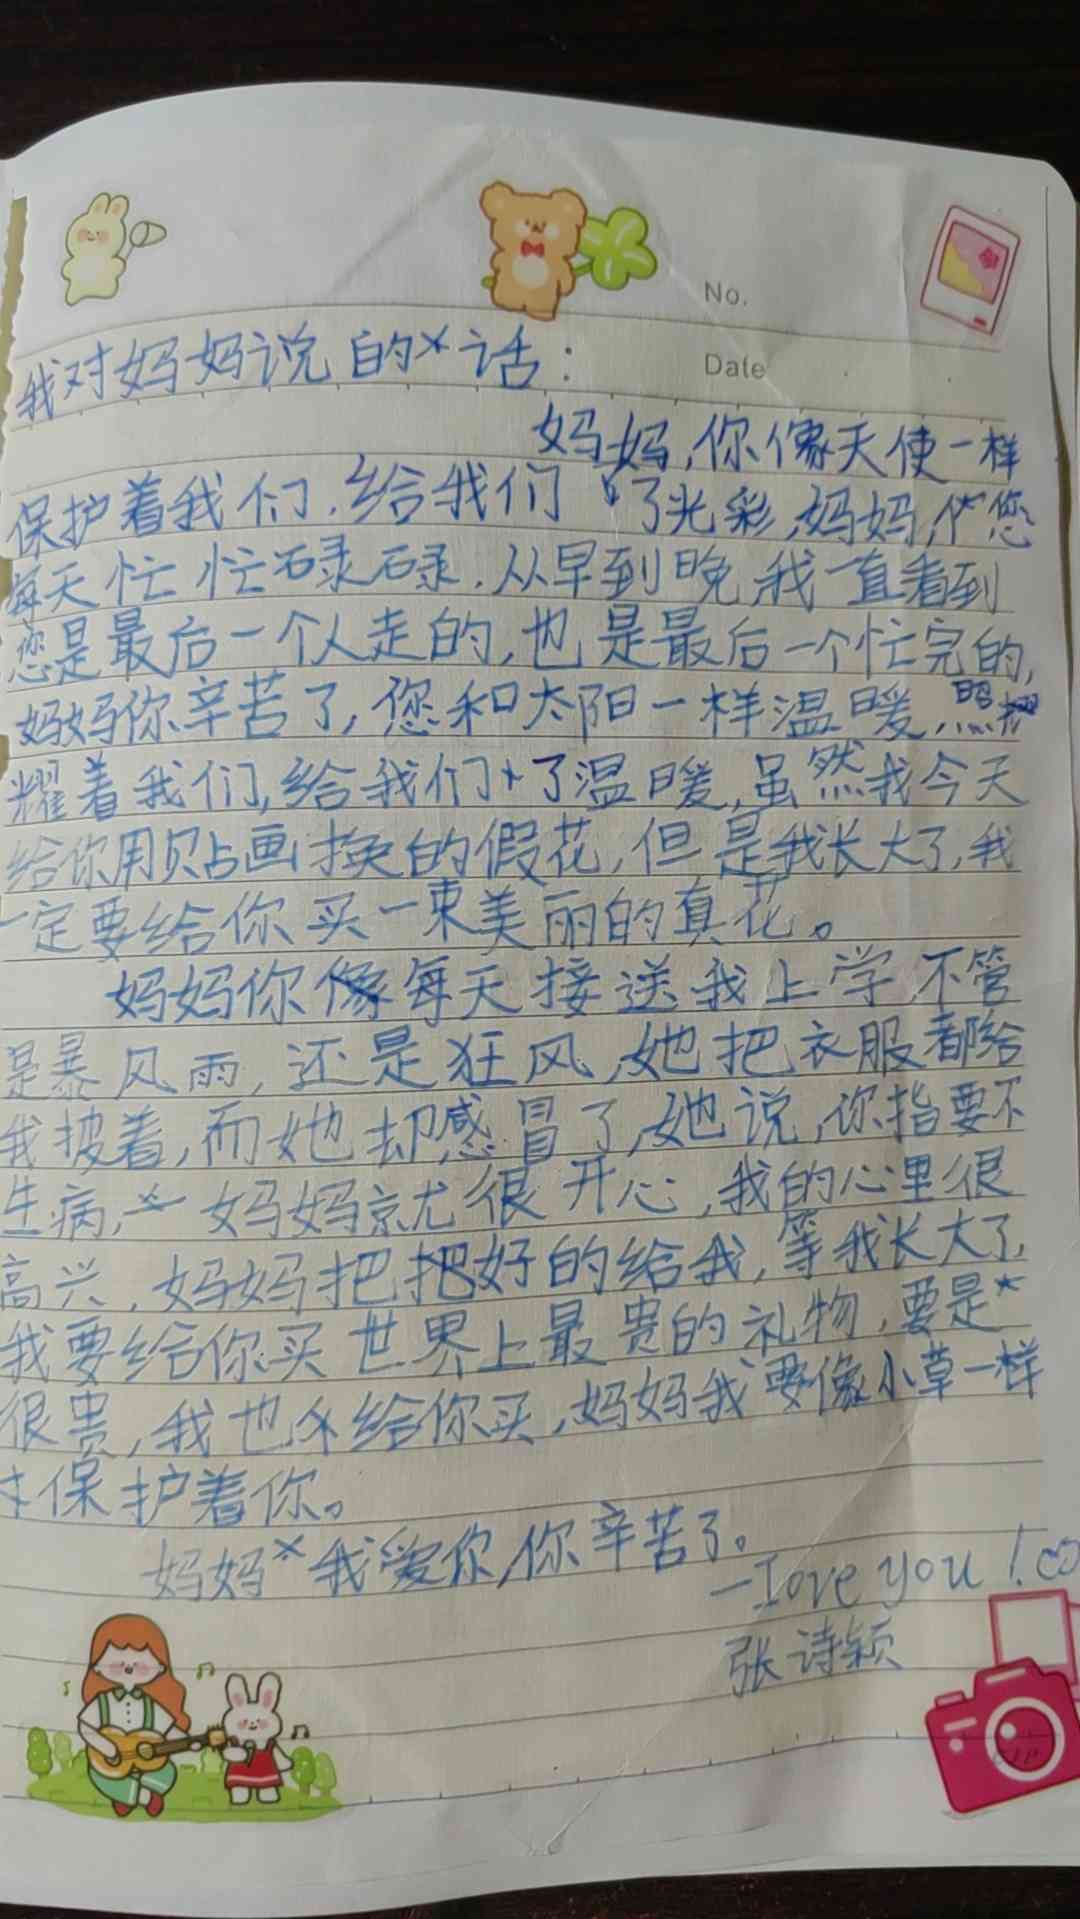 No.
我对妈妈说的话：
Date
妈妈,你像天使一样
保护着我们,给我们了光彩,妈妈,您
每天忙忙碌碌,从早到晚,我一直看到
您是最后一个人走的,也是最后一个忙完的,
妈妈你辛苦了,您和太阳一样温暖,照
耀着我们,给我们了温暖,虽然我今天
给你用贴画换的假花,但是我长大了,我
一定要给你买一束美丽的真花。
妈妈你每天接送我上学,不管
是暴风雨,还是狂风,她把衣服都给
我披着,而她却感冒了,她说,你指要不
生病,妈妈就很开心,我的心里很
高兴,妈妈把把好的给我,等我长大了,
我要给你买世界上最贵的礼物,要是
很贵,我也给你买,妈妈我要像小草一样
保护着你。
妈妈我爱你,你辛苦了。
—Iove you!
张诗颖